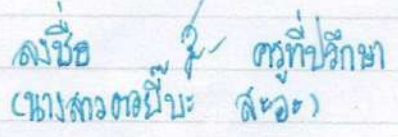 ลงชื่อ ครูที่ปรึกษา
(นางสาวตอยีบะ สะอะ)